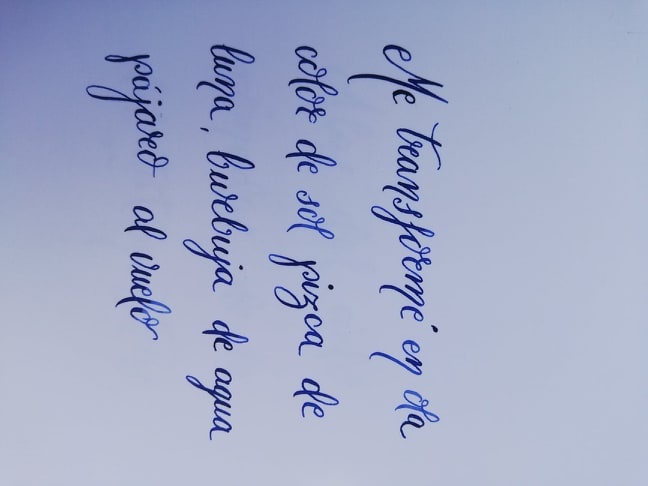 Me transformé en ola
color de sol pizca de
luna, burbuja de agua
pájaro al vuelo